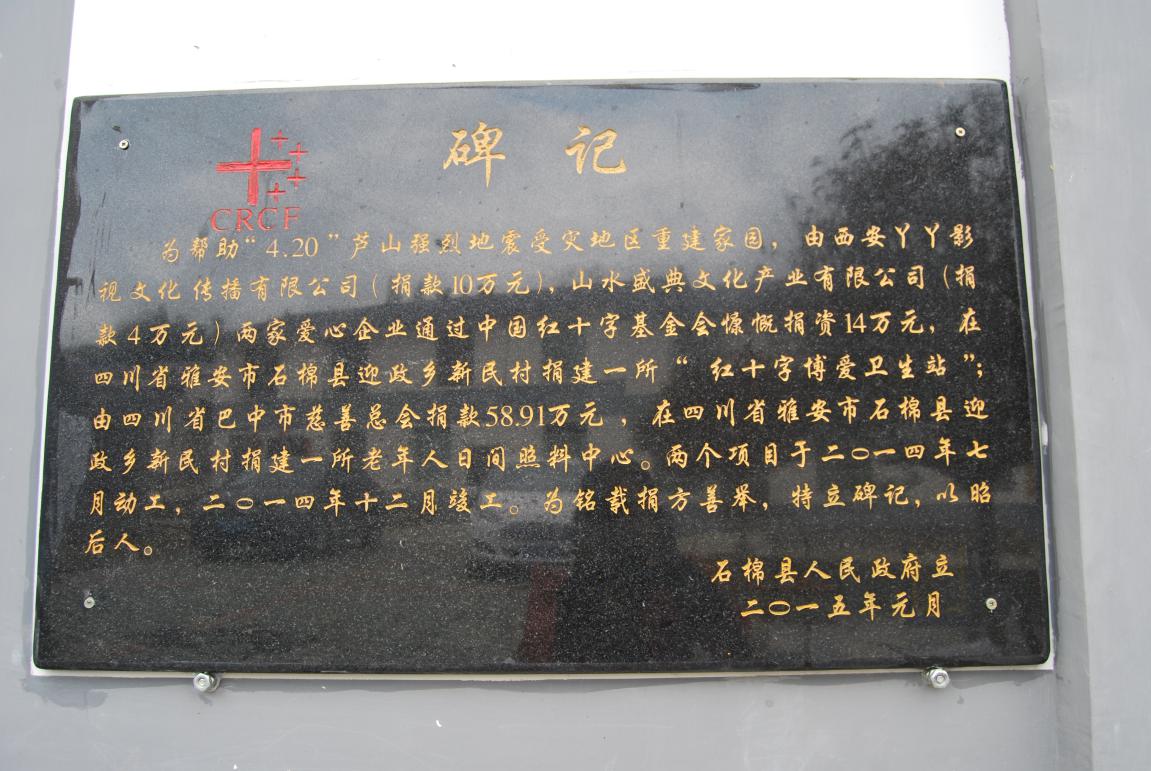 碑记
CRCF
为帮助“4.20”芦山强烈地震受灾地区重建家园，由西安丫丫影
视文化传播有限公司（捐款10万元），山水盛典文化产业有限公司（捐
款4万元）两家爱心企业通过中国红十字基金会慷慨捐资14万元，在
四川省雅安市石棉县迎政乡新民村捐建一所“红十字博爱卫生站”；
由四川省巴中市慈善总会捐款58.91万元，在四川省雅安市石棉县迎
政乡新民村捐建一所老年人日间照料中心。两个项目于二〇一四年七
月动工，二〇一四年十二月竣工。为铭载捐方善举，特立碑记，以昭
后人。
石棉县人民政府立
二〇一五年元月